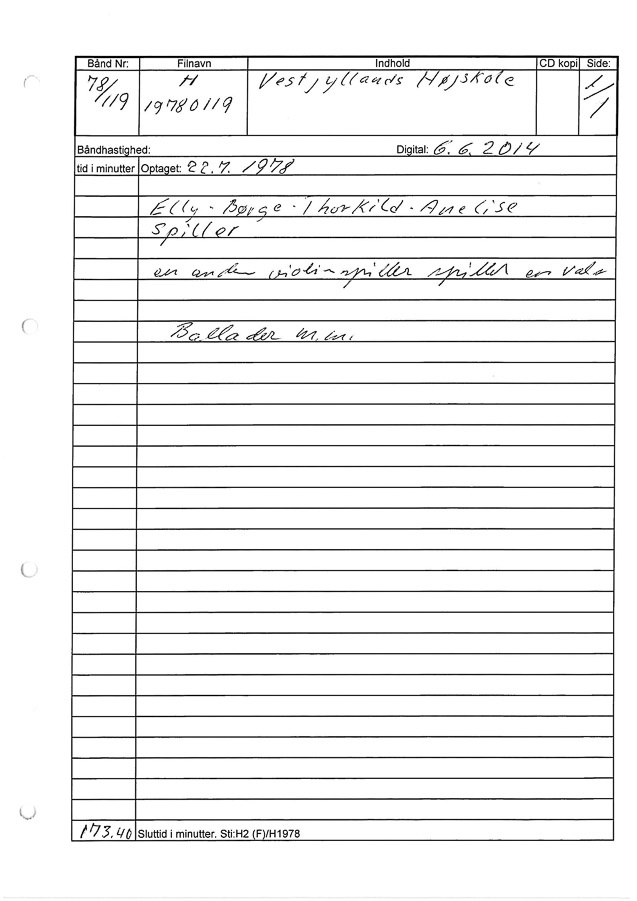 Bånd Nr: Filnavn Indhold CD kopi Side:
78/119 H 19780119 Vestjyllands Højskole 1/1
Båndhastighed: Digital: 6.6.2014
tid i minutter Optaget: 22.7.1978
Elly - Børge - Thorkild - Anelise
spiller
en anden violinspiller spiller en vals
Ballader m.m.
173.40 Sluttid i minutter. Sti:H2 (F)/H1978